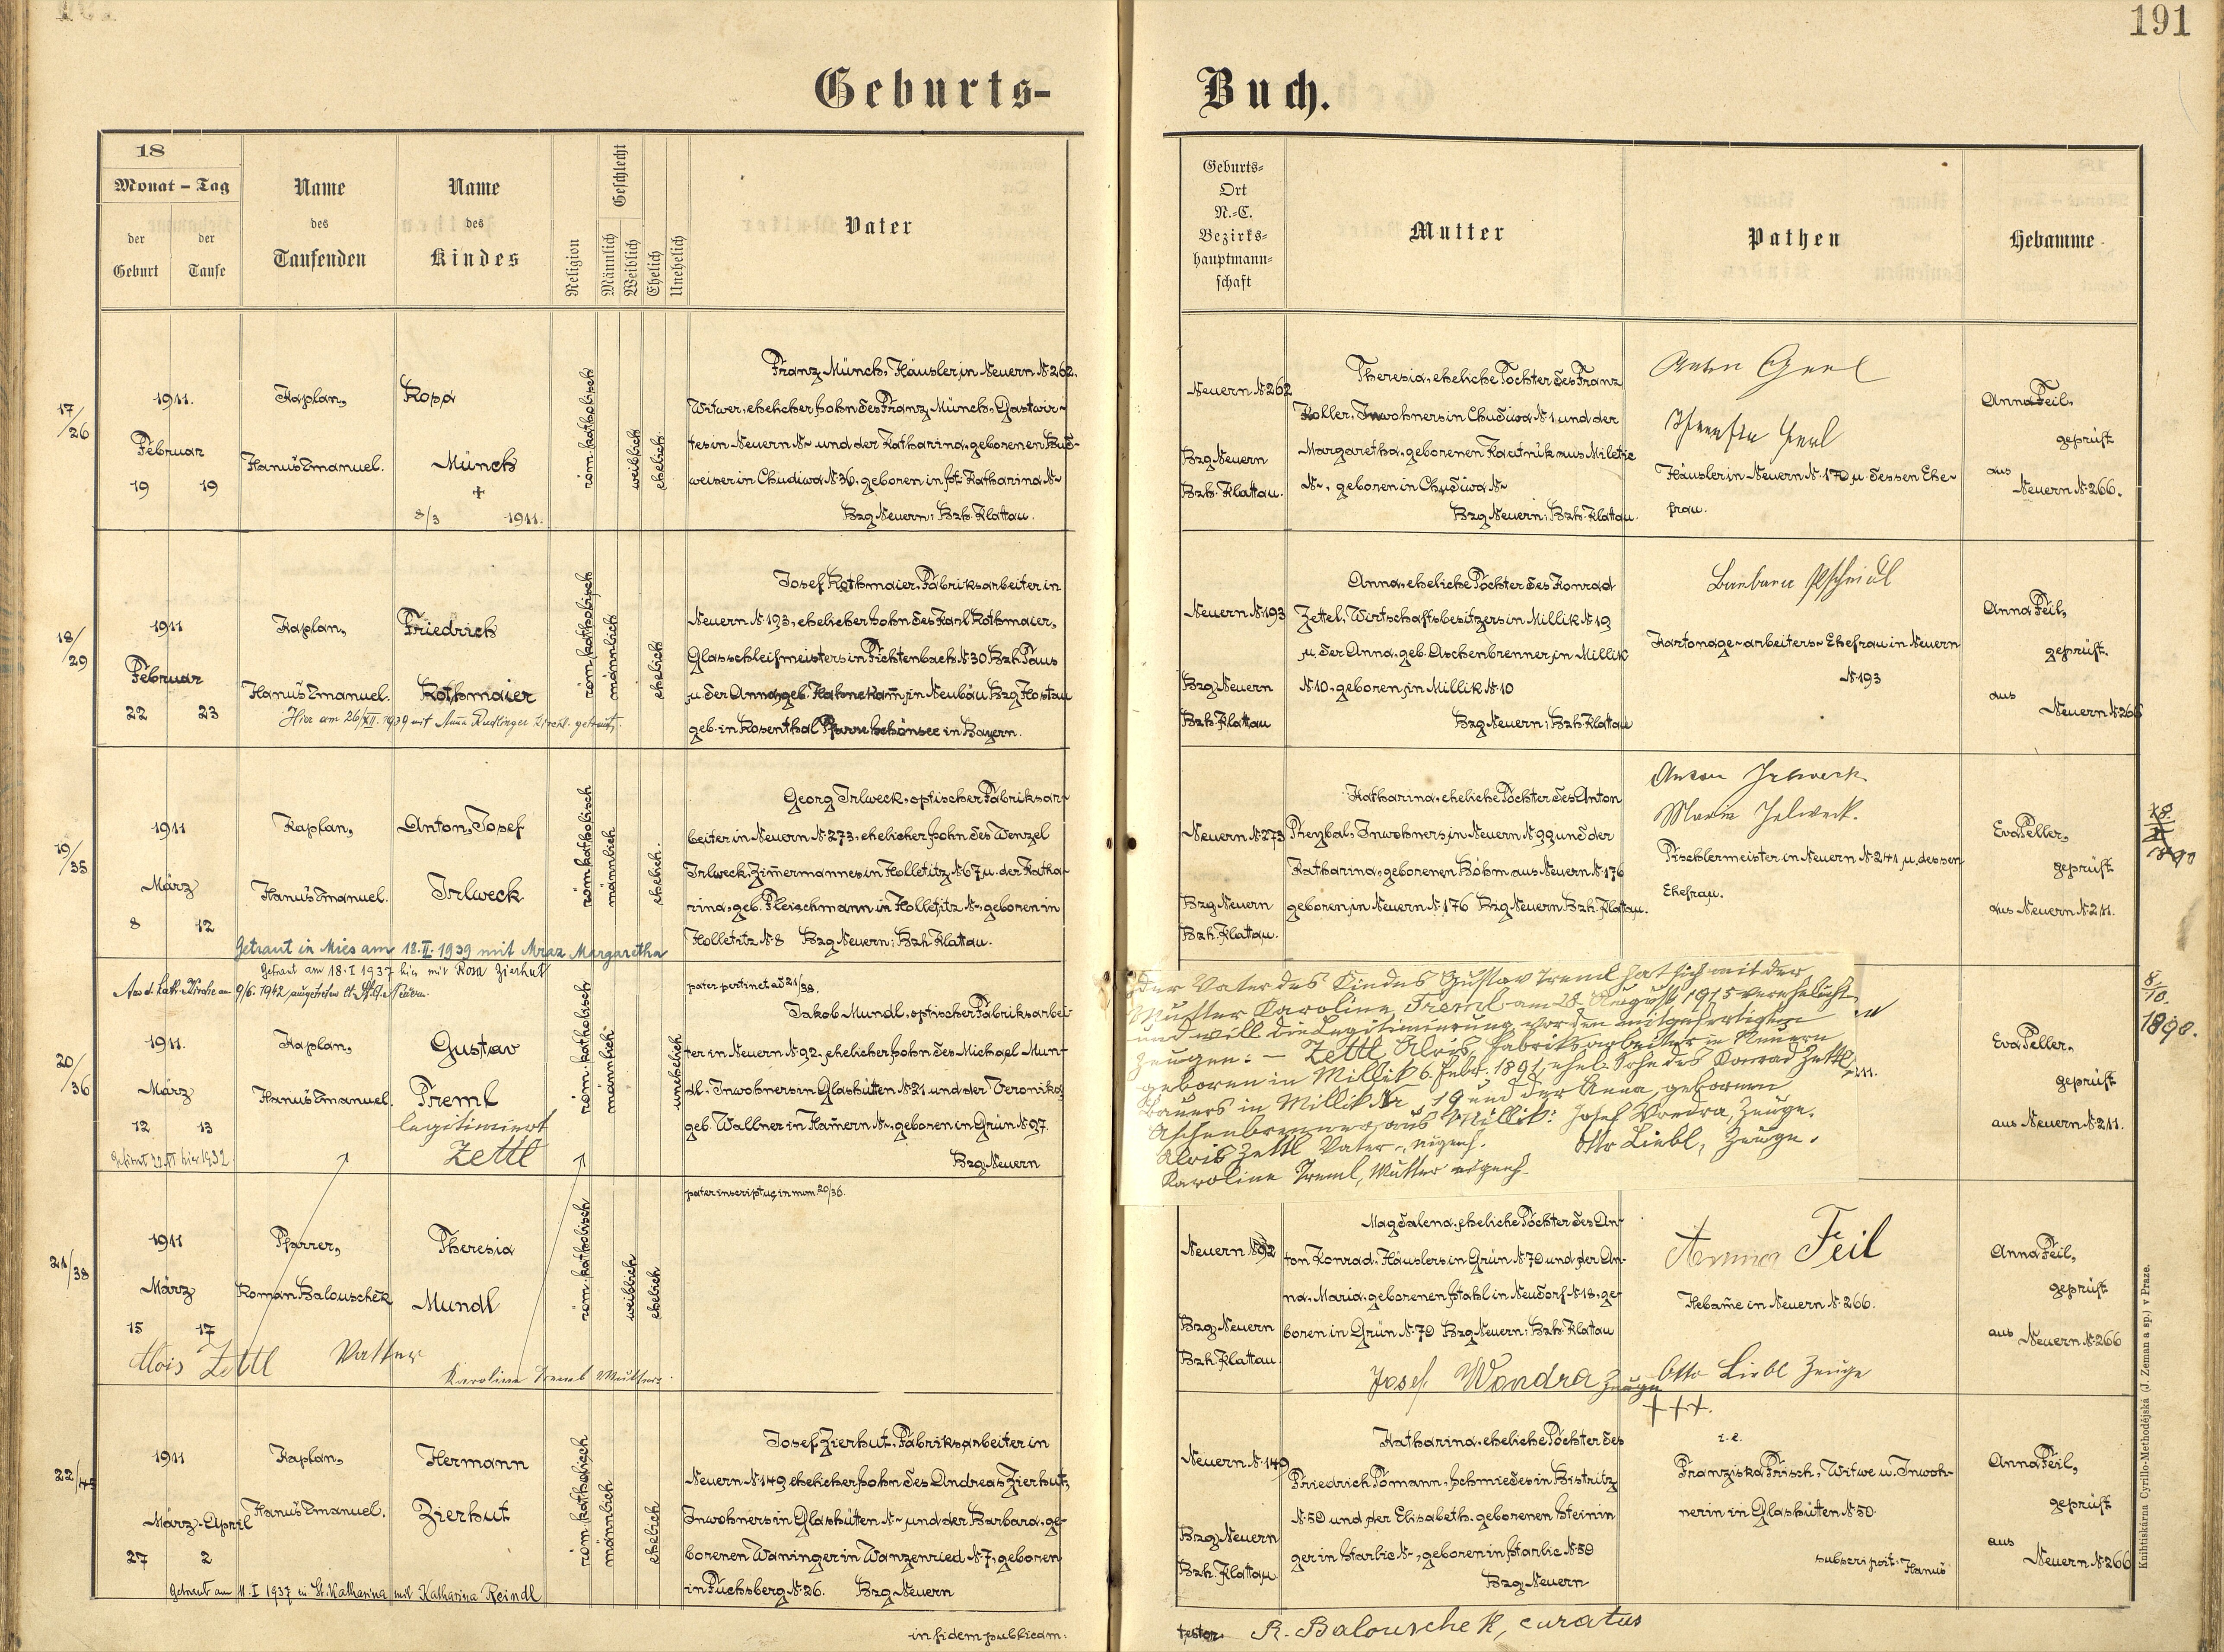 191
Geburts-
Buch.
18
Monat - Tag
der Geburt
der Taufe
Name des Taufenden
Name des Kindes
Religion
Geschlecht
Männlich
Weiblich
Ehelich
Unehelich
Vater
Geburts-
Ort
N.-C.
Bezirks-
hauptmann-
schaft
Mutter
Pathen
Hebamme
17/26
1911.
Februar
19 19
Kaplan,
Hanuš Emanuel.
Rosa
Münch
+
8/3 1911.
röm. katholisch
weiblich
ehelich.
Franz Münch, Häusler in Neuern N. 262,
Witwer, ehelicher Sohn des Franz Münch, Gastwir-
tes in Neuern N~ und der Katharina, geborenen Bud-
weiser in Chudiwa N. 36, geboren in St. Katharina N~
Bzg Neuern, Bzh. Klattau.
Neuern N. 262
Bzg Neuern
Bzh. Klattau.
Theresia, eheliche Tochter des Franz
Koller, Inwohners in Chudiwa N. 1 und der
Margaretha, geborenen Kautnik aus Miletic
N~, geboren in Chudiwa N~
Bzg Neuern, Bzh. Klattau.
Häusler in Neuern N. 170 u. dessen Ehe-
frau.
Anna Feil,
geprüft
aus
Neuern N. 266.
18/29
1911
Februar
22 23
Kaplan,
Hanuš Emanuel.
Friedrich
Rothmaier
Hier am 26/XII. 1939 mit Anna Rudlinger kirchl. getraut.
röm. katholisch
männlich
ehelich
Josef Rothmaier, Fabriksarbeiter in
Neuern N. 193, ehelicher Sohn des Karl Rothmaier,
Glasschleifmeisters in Fichtenbach N. 30 Bzh. Taus
u. der Anna, geb. Hahnekam, in Neubäu Bzg Hostau
geb. in Rosenthal Pfarre Schönsee in Bayern.
Neuern N. 193
Bzg Neuern
Bzh. Klattau
Anna, eheliche Tochter des Konrad
Zettel, Wirtschaftsbesitzers in Millik N. 19
u. der Anna, geb. Aschenbrenner, in Millik
N. 10, geboren in Millik N. 10
Bzg Neuern, Bzh. Klattau
Barbara
Kartonage-arbeiters-Ehefrau in Neuern
N. 193
Anna Feil,
geprüft.
aus
Neuern N. 266
19/35
1911
März
8 12
Kaplan,
Hanuš Emanuel.
Anton, Josef
Irlweck
Getraut in Mies am 18.II.1939 mit Mraz Margaretha
röm. katholisch
männlich
ehelich.
Georg Irlweck, optischer Fabriksar-
beiter in Neuern N. 273, ehelicher Sohn des Wenzel
Irlweck, Zimmermannes in Holletitz N. 67 u. der Katha-
rina, geb. Fleischmann in Holletitz N~, geboren in
Holletitz N. 8 Bzg Neuern, Bzh. Klattau.
Neuern N. 273
Bzg Neuern
Bzh. Klattau.
Katharina, eheliche Tochter des Anton
Inwohners, in Neuern N. 99 und der
Katharina, geborenen Böhm aus Neuern N. 176
geboren, in Neuern N. 176 Bzg Neuern, Bzh. Klattau.
Anton Irlweck
Maria Irlweck.
Tischlermeister in Neuern N. 241, u. dessen
Ehefrau.
Eva Peller,
geprüft
aus Neuern N. 211.
Getraut am 18.I 1937 hier mit Rosa Zierhut
20/36
1911.
März
12 13
Kaplan,
Hanuš Emanuel.
Gustav
Treml
legitimiert
Zettl
röm. katholisch
männlich
unehelich
pater pertinet ad 21/38.
Jakob Mundl, optischer Fabriksarbei-
ter in Neuern N. 92, ehelicher Sohn des Michael Mun-
dl, Inwohners in Glashütten N. 21 und der Veronika,
geb. Wallner in Hamern N~, geboren in Grün N. 97.
Bzg Neuern
Der Vater des Kindes Gustav Treml hat sich mit der
Mutter Karoline Treml am 28. August 1915 verehelicht
und will die Legitimierung vor den mitgefertigten
Zeugen: - Zettl Alois, Fabriksarbeiter in Neuern
geboren in Millik 6. Febr. 1891, ehel. Sohn des Konrad Zettl,
Bauers in Millik Nr 19 und der Anna, geborenen
Aschenbrenner, aus Millik: Josef Wondra, Zeuge.
Alois Zettl Vater, eigenh. Otto Liebl, Zeuge.
Karoline Treml, Mutter eigenh.
Eva Peller,
geprüft
aus Neuern N. 211.
8/10.
1890.
21/38
1911
März
15 17
Pfarrer,
Roman Balouschek
Theresia
Mundl
röm. katholisch
weiblich
ehelich
pater inscriptus in num. 20/36.
Neuern N. 92
Bzg Neuern
Bzh. Klattau
Magdalena, eheliche Tochter des An-
ton Konrad, Häuslers in Grün N. 70 und der An-
na, Maria, geborenen Stahl in Neudorf N. 18, ge-
boren in Grün N. 70 Bzg Neuern, Bzh. Klattau
Anna Feil
Hebame in Neuern N. 266.
Anna Feil,
geprüft
aus Neuern N. 266
Alois Zettl Vatter
Karoline Treml Mutter
Josef Wondra Zeuge
Otto Liebl Zeuge
22/45
1911
März-April
27 2
Kaplan,
Hanuš Emanuel.
Hermann
Zierhut
Getraut am 11.I 1937 in St. Katharina mit Katharina Reindl
röm. katholisch
männlich
ehelich
Josef Zierhut, Fabriksarbeiter in
Neuern N. 149, ehelicher Sohn des Andreas Zierhut,
Inwohners in Glashütten N~ und der Barbara, ge-
borenen Waninger in Wanzenried N. 7, geboren
in Fuchsberg N. 26. Bzg Neuern
Neuern N. 149
Bzg Neuern
Bzh. Klattau
Katharina, eheliche Tochter des
Friedrich Tomann, Schmiedes in Bistritz
N. 59 und der Elisabeth, geborenen Steinin
ger in Starlic N~, geboren in Starlic N. 59
Bzg Neuern
+++.
i.e.
Franziska Frisch, Witwe u. Inwoh-
nerin in Glashütten N. 50
subscripsit: Hanuš
Anna Feil,
geprüft
aus
Neuern N. 266
in fidem publicam:
testor. R. Balouschek, curatus
Knihtiskárna Cyrillo-Methodějská (J. Zeman a sp.) v Praze.